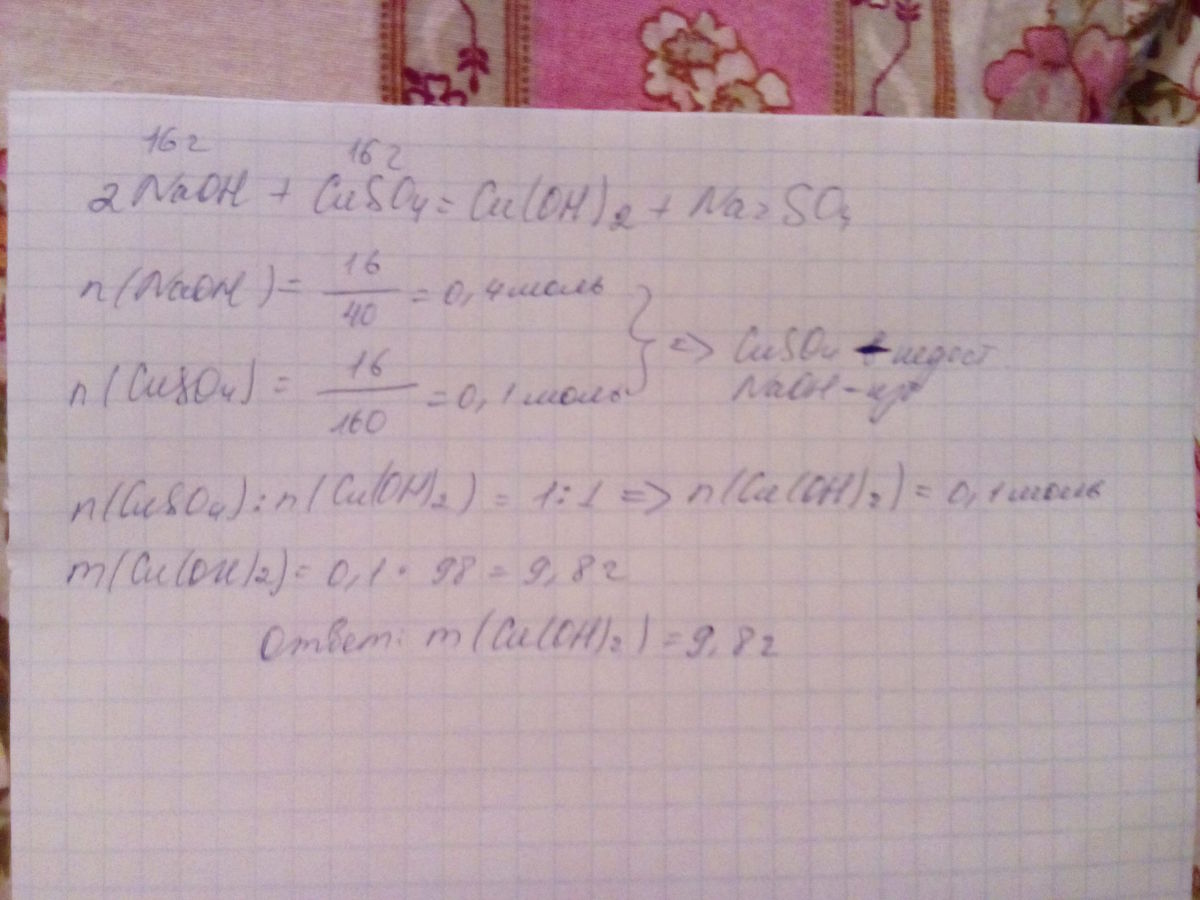 16г 16г
2NaOH + CuSO₄ = Cu(OH)₂ + Na₂SO₄
n(NaOH) = 16/40 = 0,4 моль
n(CuSO₄) = 16/160 = 0,1 моль
} => CuSO₄ - недост
NaOH - изб
n(CuSO₄) : n(Cu(OH)₂) = 1:1 => n(Cu(OH)₂) = 0,1 моль
m(Cu(OH)₂) = 0,1 · 98 = 9,8г
Ответ: m(Cu(OH)₂) = 9,8г